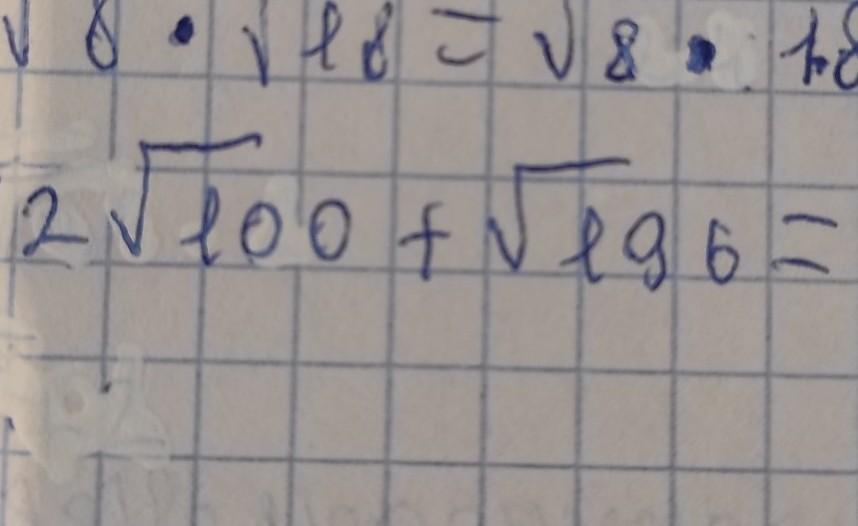 √8 • √18 = √8 • 18
2√100 + √196 =